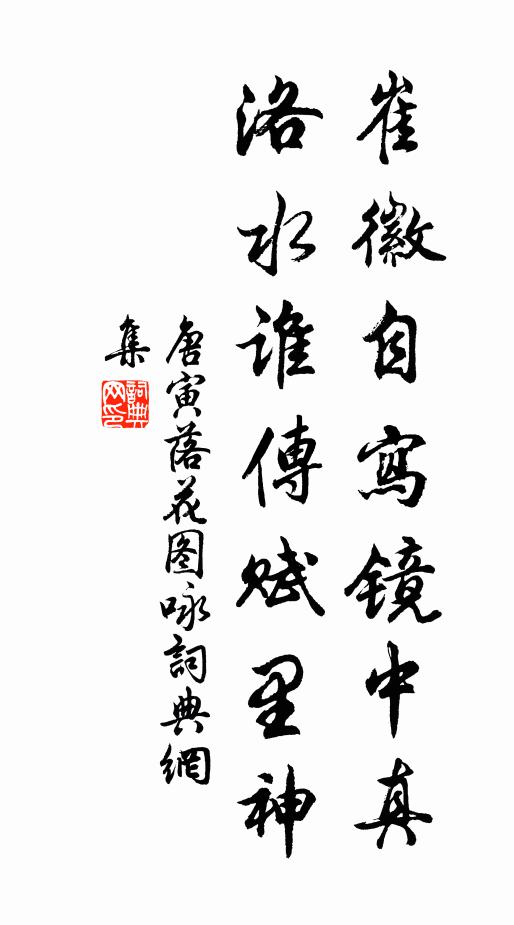 崔徽自寫鏡中真
洛水誰傳賦里神
唐寅落花图咏詞典網
集
詞典
网印